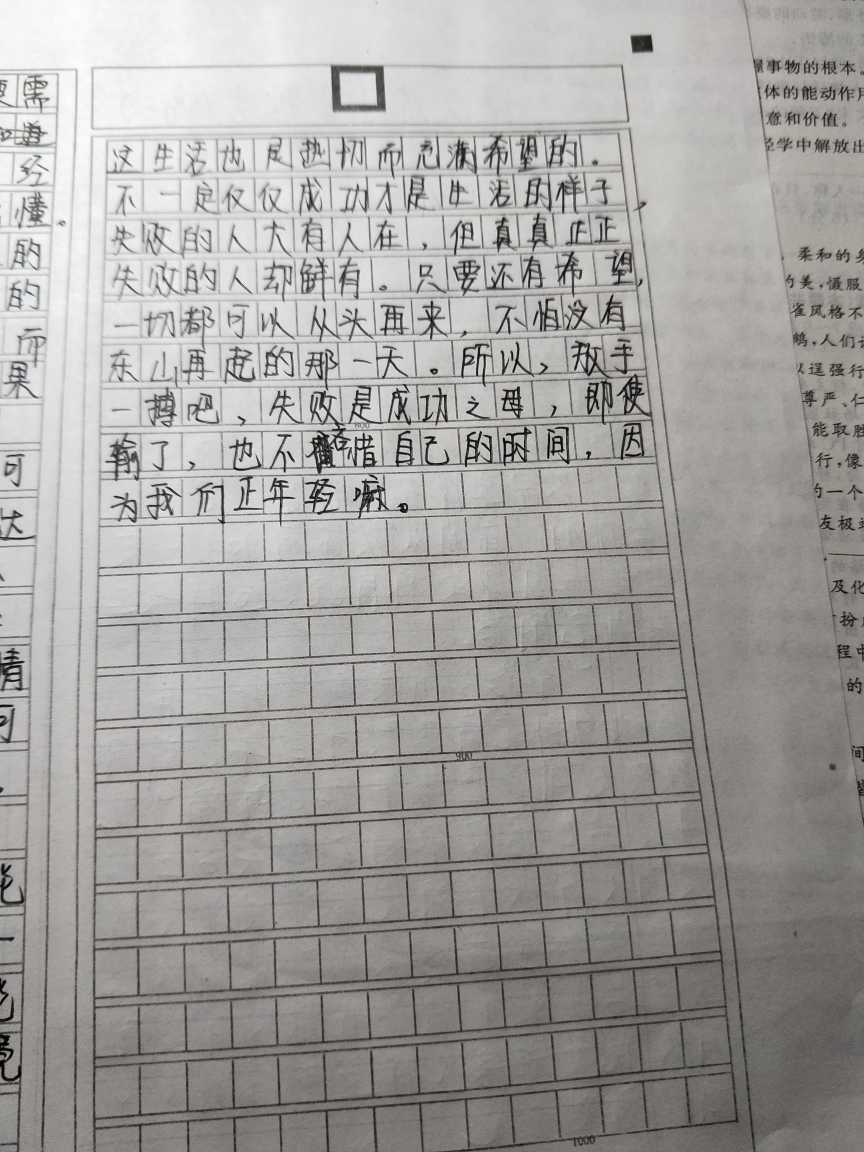 这生活也是热切而充满希望的。
不一定仅仅成功才是生活的样子，
失败的人大有人在，但真真正正
失败的人却鲜有。只要还有希望，
一切都可以从头再来，不怕没有
东山再起的那一天。所以，放手
一搏吧，失败是成功之母，即使
800
输了，也不吝惜自己的时间，因
为我们正年轻嘛。
900
1000
需
道
经
懂。
的
的
而
果
可
达
情
可
一
竟
事物的根本。
体的能动作用
意和价值。
学中解放出
柔和的
的美，慑服
雀风格不
鹅，人们
以逞强行
尊严、仁
能取胜
行，像
的一个
友极
及化
扮
程中
的
间